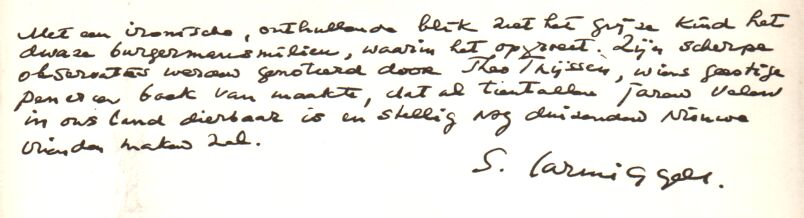 Met een ironische, onthullende blik ziet het grijze kind het
dwaze burgermansmilieu, waarin het opgroeit. Zijn scherpe
observaties werden genoteerd door Theo Thijssen, wiens geestige
pen er een boek van maakte, dat al tientallen jaren velen
in ons land dierbaar is en stellig nog duizenden nieuwe
vrienden maken zal.
S. Carmiggelt.